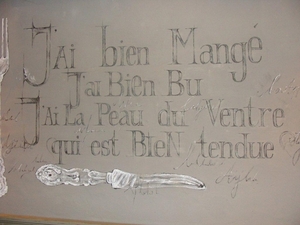 J'ai bien Mangé
J'ai Bien Bu
J'ai La Peau du Ventre
qui est BIeN tendue